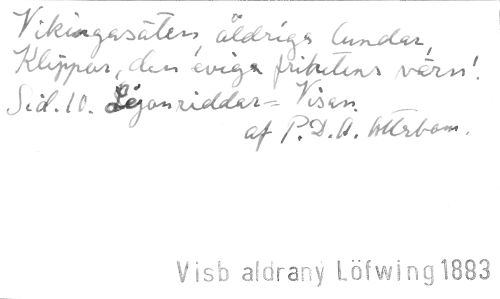 Vikingasäten, åldriga lundar,
Klippor, den eviga frihetens värn!
Sid. 10. Legonriddar= Visan.
af P.D.A. Atterbom.
Visb aldrany Löfwing 1883